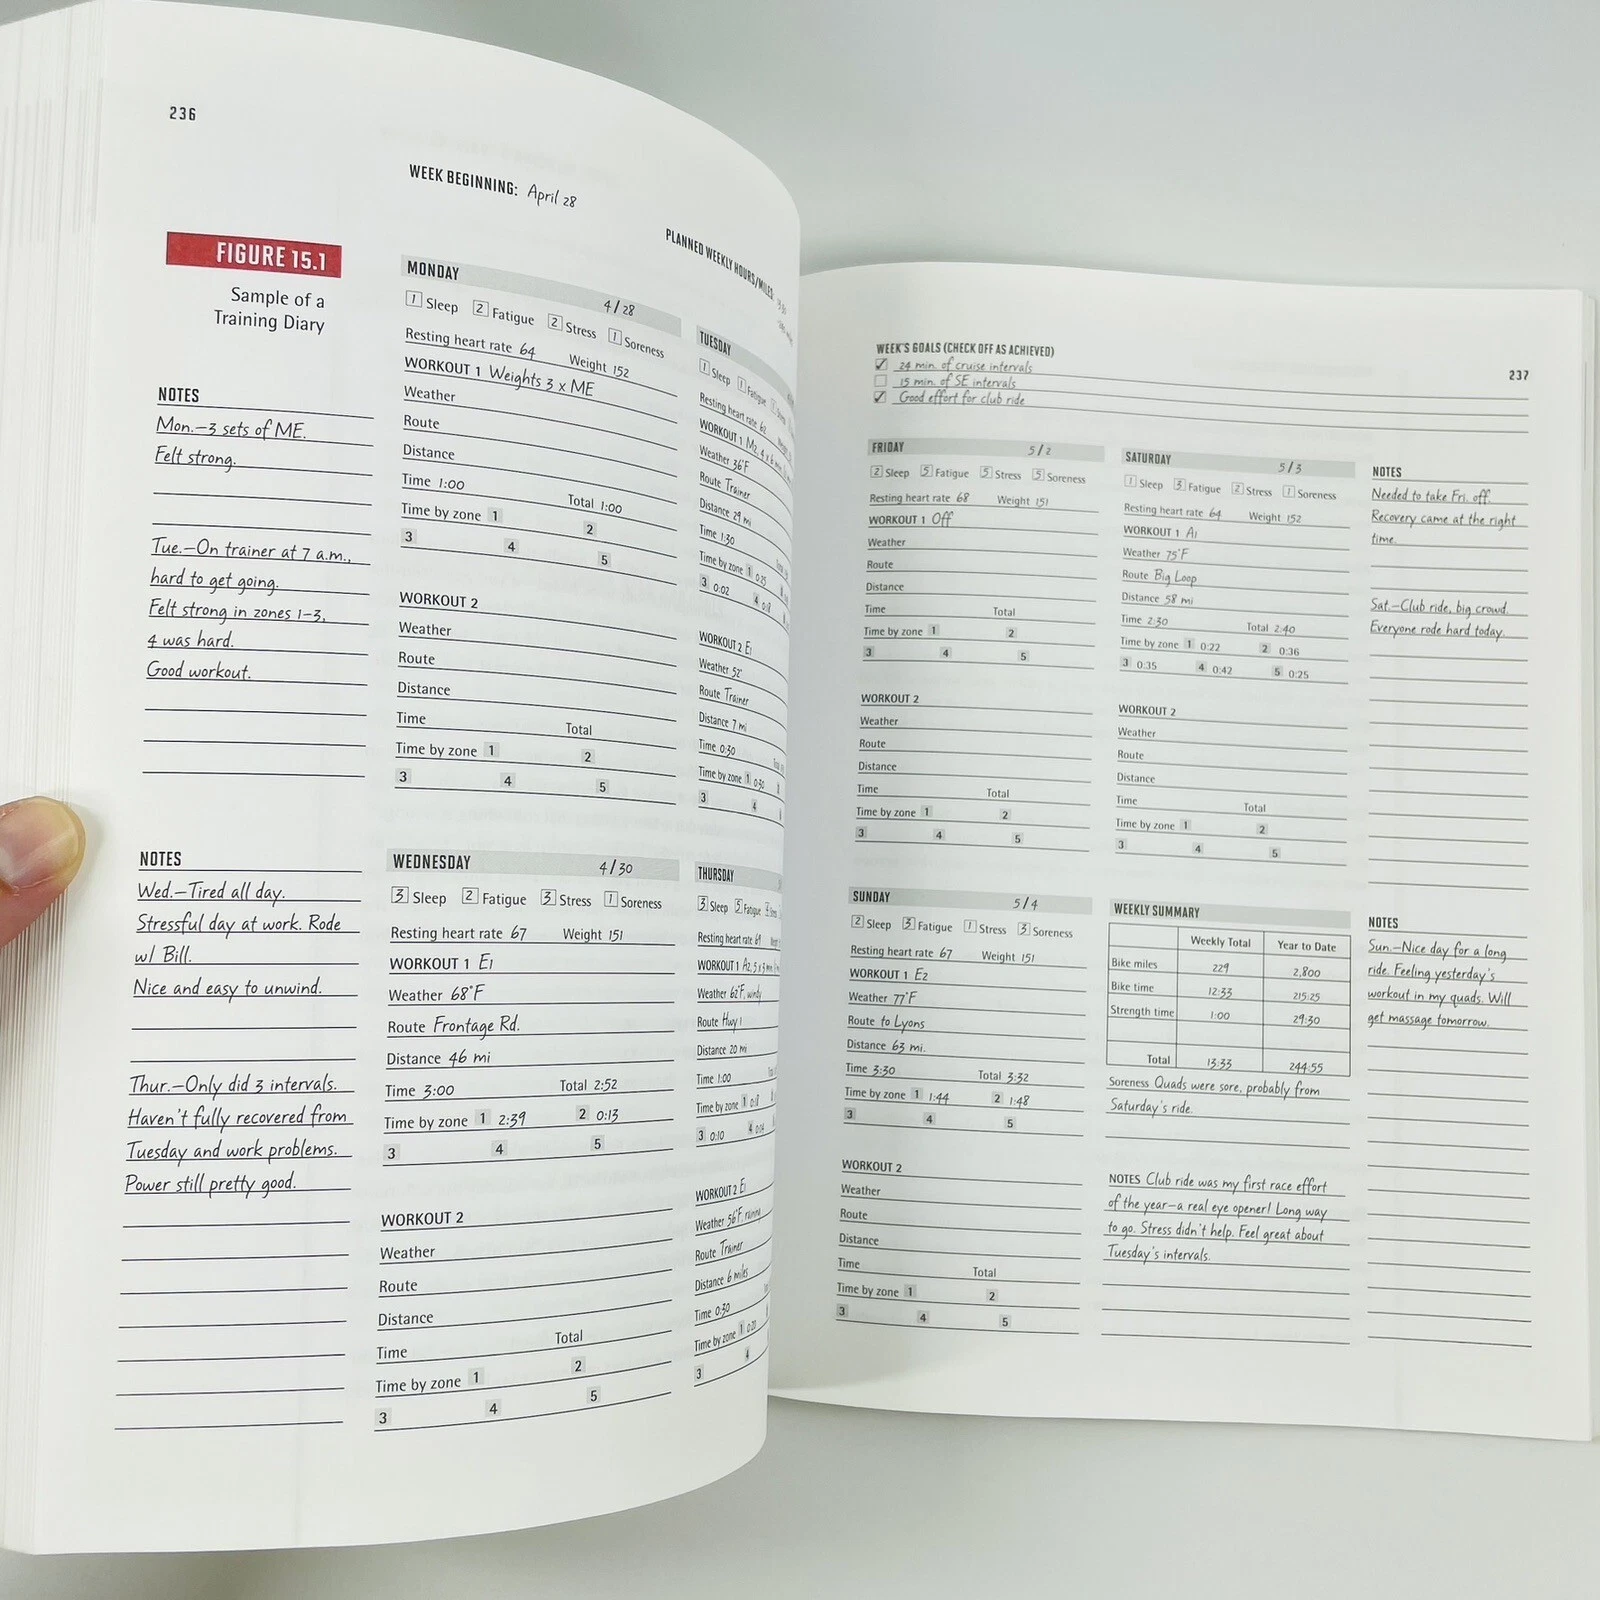 236
WEEK BEGINNING: April 28
PLANNED WEEKLY HOURS/MILES:
FIGURE 15.1
Sample of a
Training Diary
NOTES
Mon.—3 sets of ME.
Felt strong.
Tue.—On trainer at 7 a.m.,
hard to get going.
Felt strong in zones 1–3,
4 was hard.
Good workout.
MONDAY 4/28
1 Sleep 2 Fatigue 2 Stress 1 Soreness
Resting heart rate 64 Weight 152
WORKOUT 1 Weights 3 x ME
Weather
Route
Distance
Time 1:00 Total 1:00
Time by zone 1 2
3 4 5
WORKOUT 2
Weather
Route
Distance
Time Total
Time by zone 1 2
3 4 5
TUESDAY
1 Sleep 1 Fatigue
Resting heart rate 62
WORKOUT 1 M2, 4 x 6 min.
Weather 36°F
Route Trainer
Distance 29 mi
Time 1:30
Time by zone 1 0:25
3 0:02 4
WORKOUT 2 E1
Weather 52°
Route Trainer
Distance 7 mi
Time 0:30
Time by zone 1 0:30
3 4
NOTES
Wed.—Tired all day.
Stressful day at work. Rode
w/ Bill.
Nice and easy to unwind.
Thur.—Only did 3 intervals.
Haven't fully recovered from
Tuesday and work problems.
Power still pretty good.
WEDNESDAY 4/30
3 Sleep 2 Fatigue 3 Stress 1 Soreness
Resting heart rate 67 Weight 151
WORKOUT 1 E1
Weather 68°F
Route Frontage Rd.
Distance 46 mi
Time 3:00 Total 2:52
Time by zone 1 2:39 2 0:13
3 4 5
WORKOUT 2
Weather
Route
Distance
Time Total
Time by zone 1 2
3 4 5
THURSDAY
3 Sleep 5 Fatigue
Resting heart rate 69
WORKOUT 1 A2, 5 x 3 min.
Weather 62°F, windy
Route Hwy 1
Distance 20 mi
Time 1:00
Time by zone 1 0:18
3 0:10 4 0:04
WORKOUT 2 E1
Weather 56°F, raining
Route Trainer
Distance 6 miles
Time 0:30
Time by zone 1 0:20
3 4
237
WEEK'S GOALS (CHECK OFF AS ACHIEVED)
24 min. of cruise intervals
15 min. of SE intervals
Good effort for club ride
FRIDAY 5/2
2 Sleep 5 Fatigue 5 Stress 5 Soreness
Resting heart rate 68 Weight 151
WORKOUT 1 Off
Weather
Route
Distance
Time Total
Time by zone 1 2
3 4 5
WORKOUT 2
Weather
Route
Distance
Time Total
Time by zone 1 2
3 4 5
SATURDAY 5/3
1 Sleep 3 Fatigue 2 Stress 1 Soreness
Resting heart rate 64 Weight 152
WORKOUT 1 A1
Weather 75°F
Route Big Loop
Distance 58 mi
Time 2:30 Total 2:40
Time by zone 1 0:22 2 0:36
3 0:35 4 0:42 5 0:25
WORKOUT 2
Weather
Route
Distance
Time Total
Time by zone 1 2
3 4 5
NOTES
Needed to take Fri. off.
Recovery came at the right
time.
Sat.—Club ride, big crowd.
Everyone rode hard today.
SUNDAY 5/4
2 Sleep 3 Fatigue 1 Stress 3 Soreness
Resting heart rate 67 Weight 151
WORKOUT 1 E2
Weather 77°F
Route to Lyons
Distance 63 mi.
Time 3:30 Total 3:32
Time by zone 1 1:44 2 1:48
3 4 5
WORKOUT 2
Weather
Route
Distance
Time Total
Time by zone 1 2
3 4 5
WEEKLY SUMMARY
Weekly Total Year to Date
Bike miles 229 2,800
Bike time 12:33 215:25
Strength time 1:00 29:30
Total 13:33 244:55
Soreness Quads were sore, probably from
Saturday's ride.
NOTES Club ride was my first race effort
of the year—a real eye opener! Long way
to go. Stress didn't help. Feel great about
Tuesday's intervals.
NOTES
Sun.—Nice day for a long
ride. Feeling yesterday's
workout in my quads. Will
get massage tomorrow.